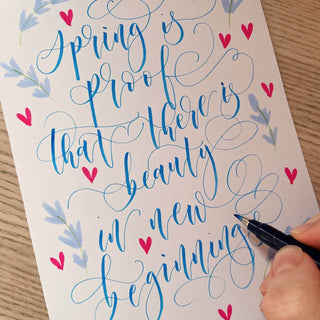 Spring is
proof
that there is
beauty
in new
beginnings